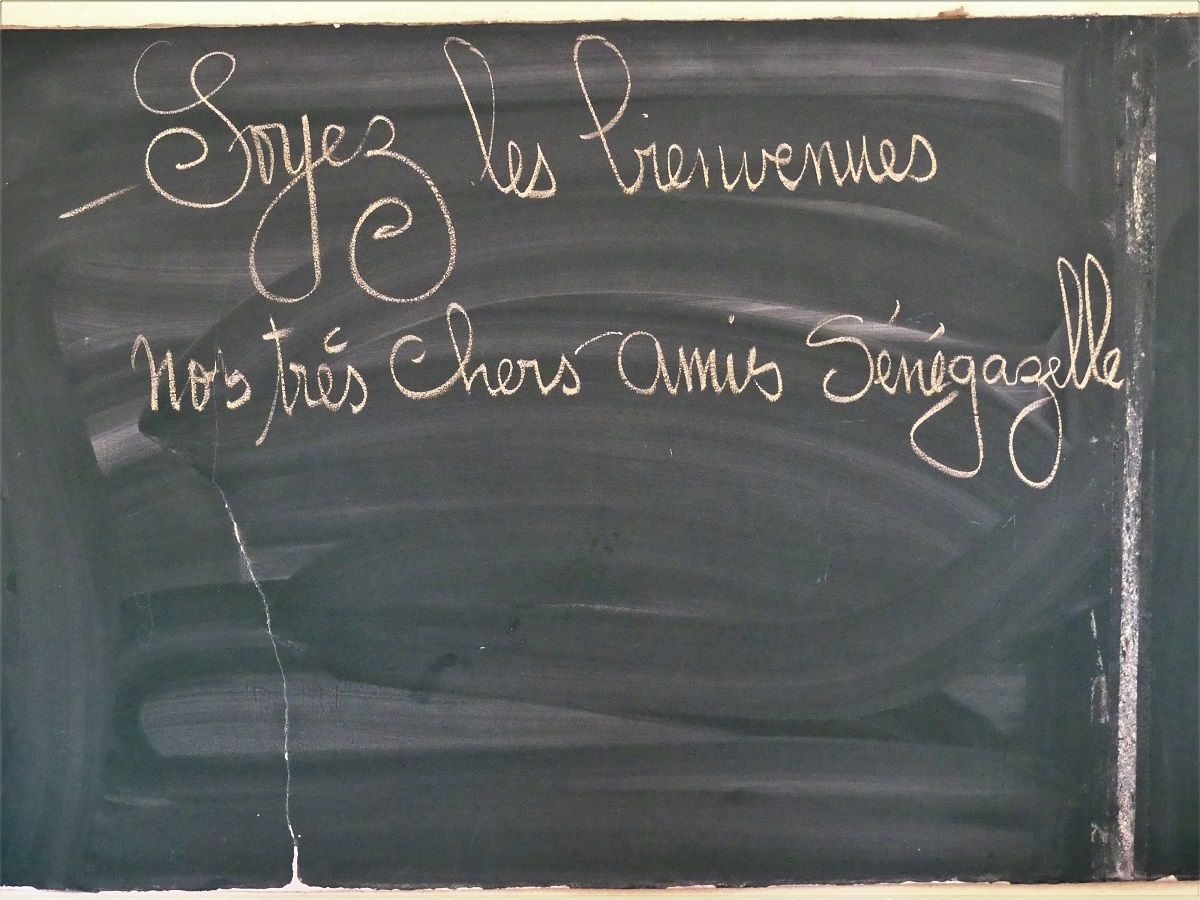 - Soyez les bienvenues
nos trés chers amis Sénégazelle